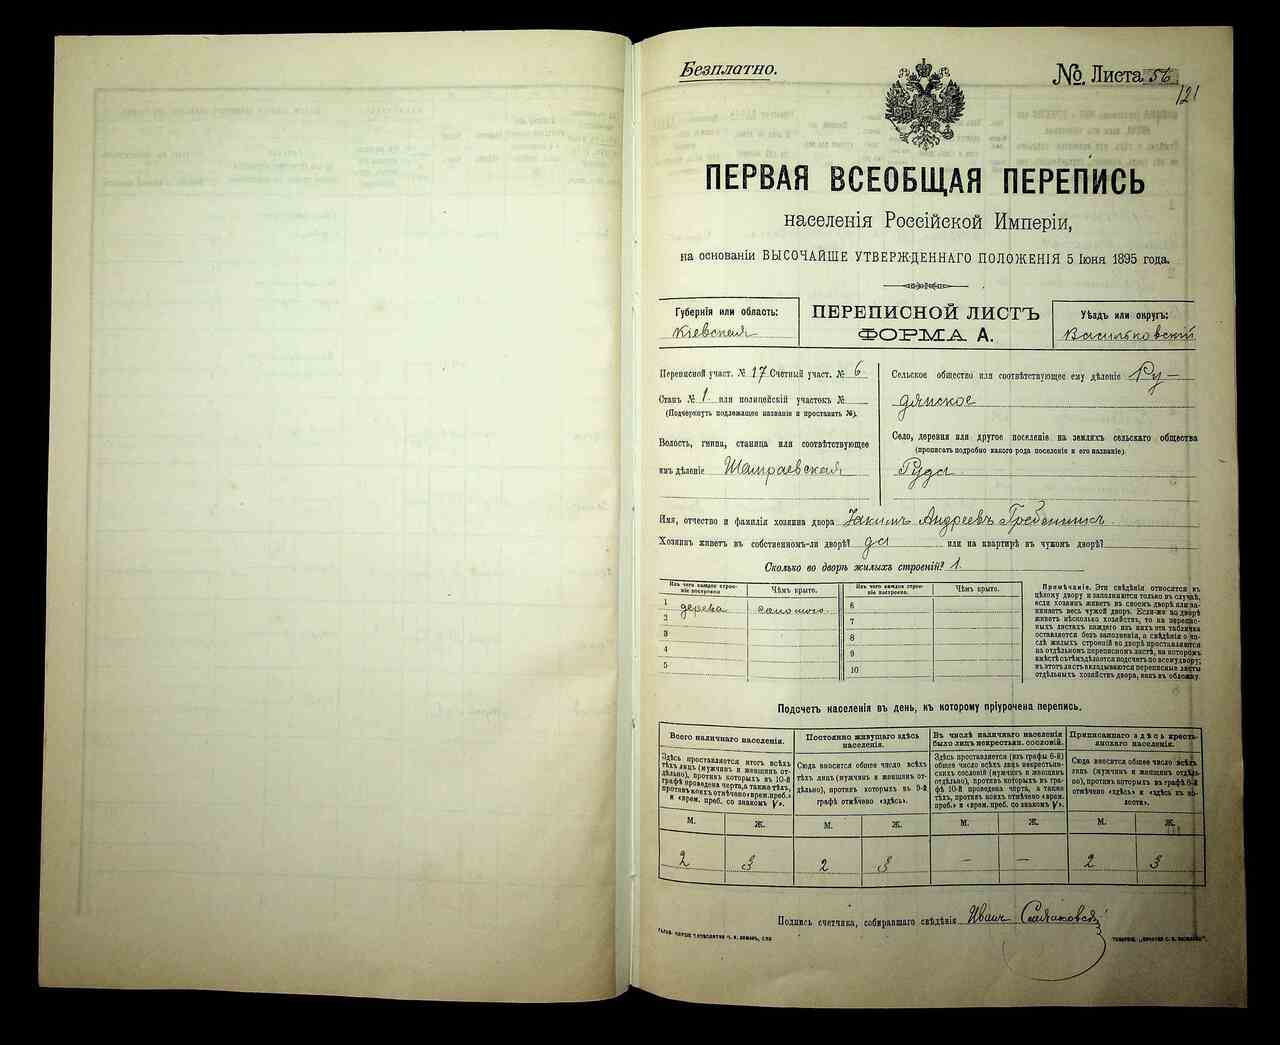 Безплатно.
№ Листа 56
121
ПЕРВАЯ ВСЕОБЩАЯ ПЕРЕПИСЬ
населенія Россійской Имперіи,
на основаніи ВЫСОЧАЙШЕ УТВЕРЖДЕННАГО ПОЛОЖЕНІЯ 5 Іюня 1895 года.
Губернія или область:
Кіевская
ПЕРЕПИСНОЙ ЛИСТЪ
ФОРМА А.
Уѣздъ или округъ:
Васильковскій
Переписной участ. № 17 Счетный участ. № 6
Станъ № 1 или полицейскій участокъ №
(Подчеркнуть подлежащее названіе и проставить №).
Волость, гмина, станица или соотвѣтствующее
имъ дѣленіе Шамраевская
Сельское общество или соотвѣтствующее ему дѣленіе Ру-
дянское
Село, деревня или другое поселеніе на земляхъ сельскаго общества
(прописать подробно какого рода поселеніе и его названіе).
Руда
Имя, отчество и фамилія хозяина двора Іакимъ Андреевъ
Хозяинъ живетъ въ собственномъ-ли дворѣ? да или на квартирѣ въ чужомъ дворѣ?
Сколько во дворѣ жилыхъ строеній? 1.
Изъ чего каждое строе-
ніе построено
Чѣмъ крыто.
Изъ чего каждое строе-
ніе построено.
Чѣмъ крыто.
1 дерева соломою
2
3
4
5
6
7
8
9
10
Примѣчаніе. Эти свѣдѣнія относятся къ
цѣлому двору и заполняются только въ случаѣ,
если хозяинъ живетъ въ своемъ дворѣ или за-
нимаетъ весь чужой дворъ. Если-же во дворѣ
живетъ нѣсколько хозяйствъ, то на перепис-
ныхъ листахъ каждаго изъ нихъ эта табличка
оставляется безъ заполненія, а свѣдѣнія о чи-
слѣ жилыхъ строеній во дворѣ проставляются
на отдѣльномъ переписномъ листѣ, на которомъ
вмѣстѣ съ тѣмъ дѣлается подсчетъ по всему двору;
въ этотъ листъ вкладываются переписные листы
отдѣльныхъ хозяйствъ двора, какъ въ обложку.
Подсчетъ населенія въ день, къ которому пріурочена перепись.
Всего наличнаго населенія.
Здѣсь проставляется итогъ всѣхъ
тѣхъ лицъ (мужчинъ и женщинъ от-
дѣльно), противъ которыхъ въ 10-й
графѣ проведена черта, а также тѣхъ,
противъ коихъ отмѣчено «врем. преб.»
и «врем. преб. со знакомъ V».
Постоянно живущаго здѣсь
населенія.
Сюда вносится общее число всѣхъ
тѣхъ лицъ (мужчинъ и женщинъ от-
дѣльно), противъ которыхъ въ 9-й
графѣ отмѣчено «здѣсь».
Въ числѣ наличнаго населенія
было лицъ некрестьян. сословій.
Здѣсь проставляется (изъ графы 6-й)
общее число всѣхъ лицъ некрестьян-
скихъ сословій (мужчинъ и женщинъ
отдѣльно), противъ которыхъ въ гра-
фѣ 10-й проведена черта, а также
тѣхъ, противъ коихъ отмѣчено «врем.
преб.» и «врем. преб. со знакомъ V».
Приписаннаго здѣсь кресть-
янскаго населенія.
Сюда вносится общее число всѣхъ
лицъ (мужчинъ и женщинъ отдѣль-
но), противъ которыхъ въ графѣ 8-й
отмѣчено «здѣсь» и «здѣсь въ во-
лости».
М. Ж. М. Ж. М. Ж. М. Ж.
2 3 2 3 — — 2 3
Подпись счетчика, собиравшаго свѣдѣнія Иванъ